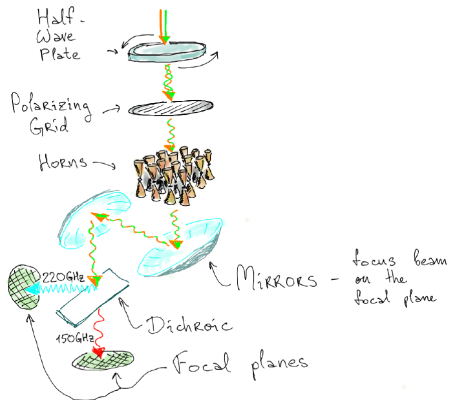 Half-
Wave
Plate
Polarizing
Grid
Horns
220GHz
Mirrors - focus beam
on the
focal plane
Dichroic
150GHz
Focal planes